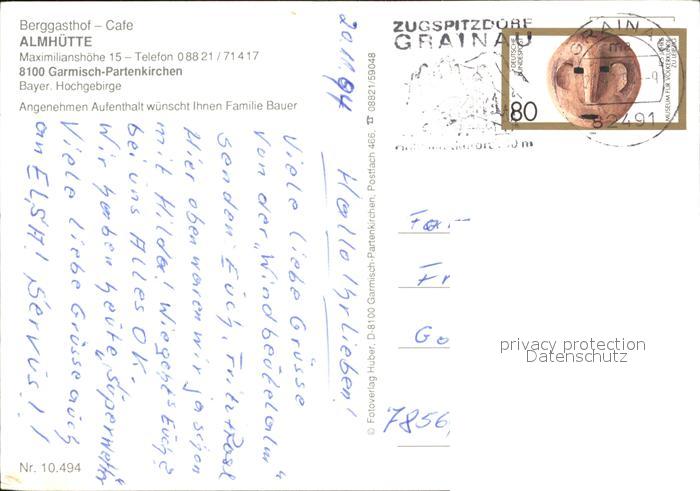 Berggasthof – Cafe
ALMHÜTTE
Maximilianshöhe 15 – Telefon 0 88 21 / 7 14 17
8100 Garmisch-Partenkirchen
Bayer. Hochgebirge
Angenehmen Aufenthalt wünscht Ihnen Familie Bauer
Hallo Ihr Lieben!
Viele liebe Grüsse
von der „Windbeutelalm"
senden Euch, Fritz +
Hier oben waren wir ja schon
mit Hilde! Wie geht's Euch?
bei uns Alles OK.
Wir haben heute „Superwetter"
Viele liebe Grüsse auch
an ELSA! Servus!!
Nr. 10.494
© Fotoverlag Huber, D-8100 Garmisch-Partenkirchen, Postfach 466, ☎ 08821/59048
ZUGSPITZDORF
GRAINAU
DEUTSCHE
BUNDESPOST
80
MUSEUM FÜR VÖLKERKUNDE
ZU LEIPZIG
GRAINAU
82491
Fam
Fr
Go
7856
privacy protection
Datenschutz